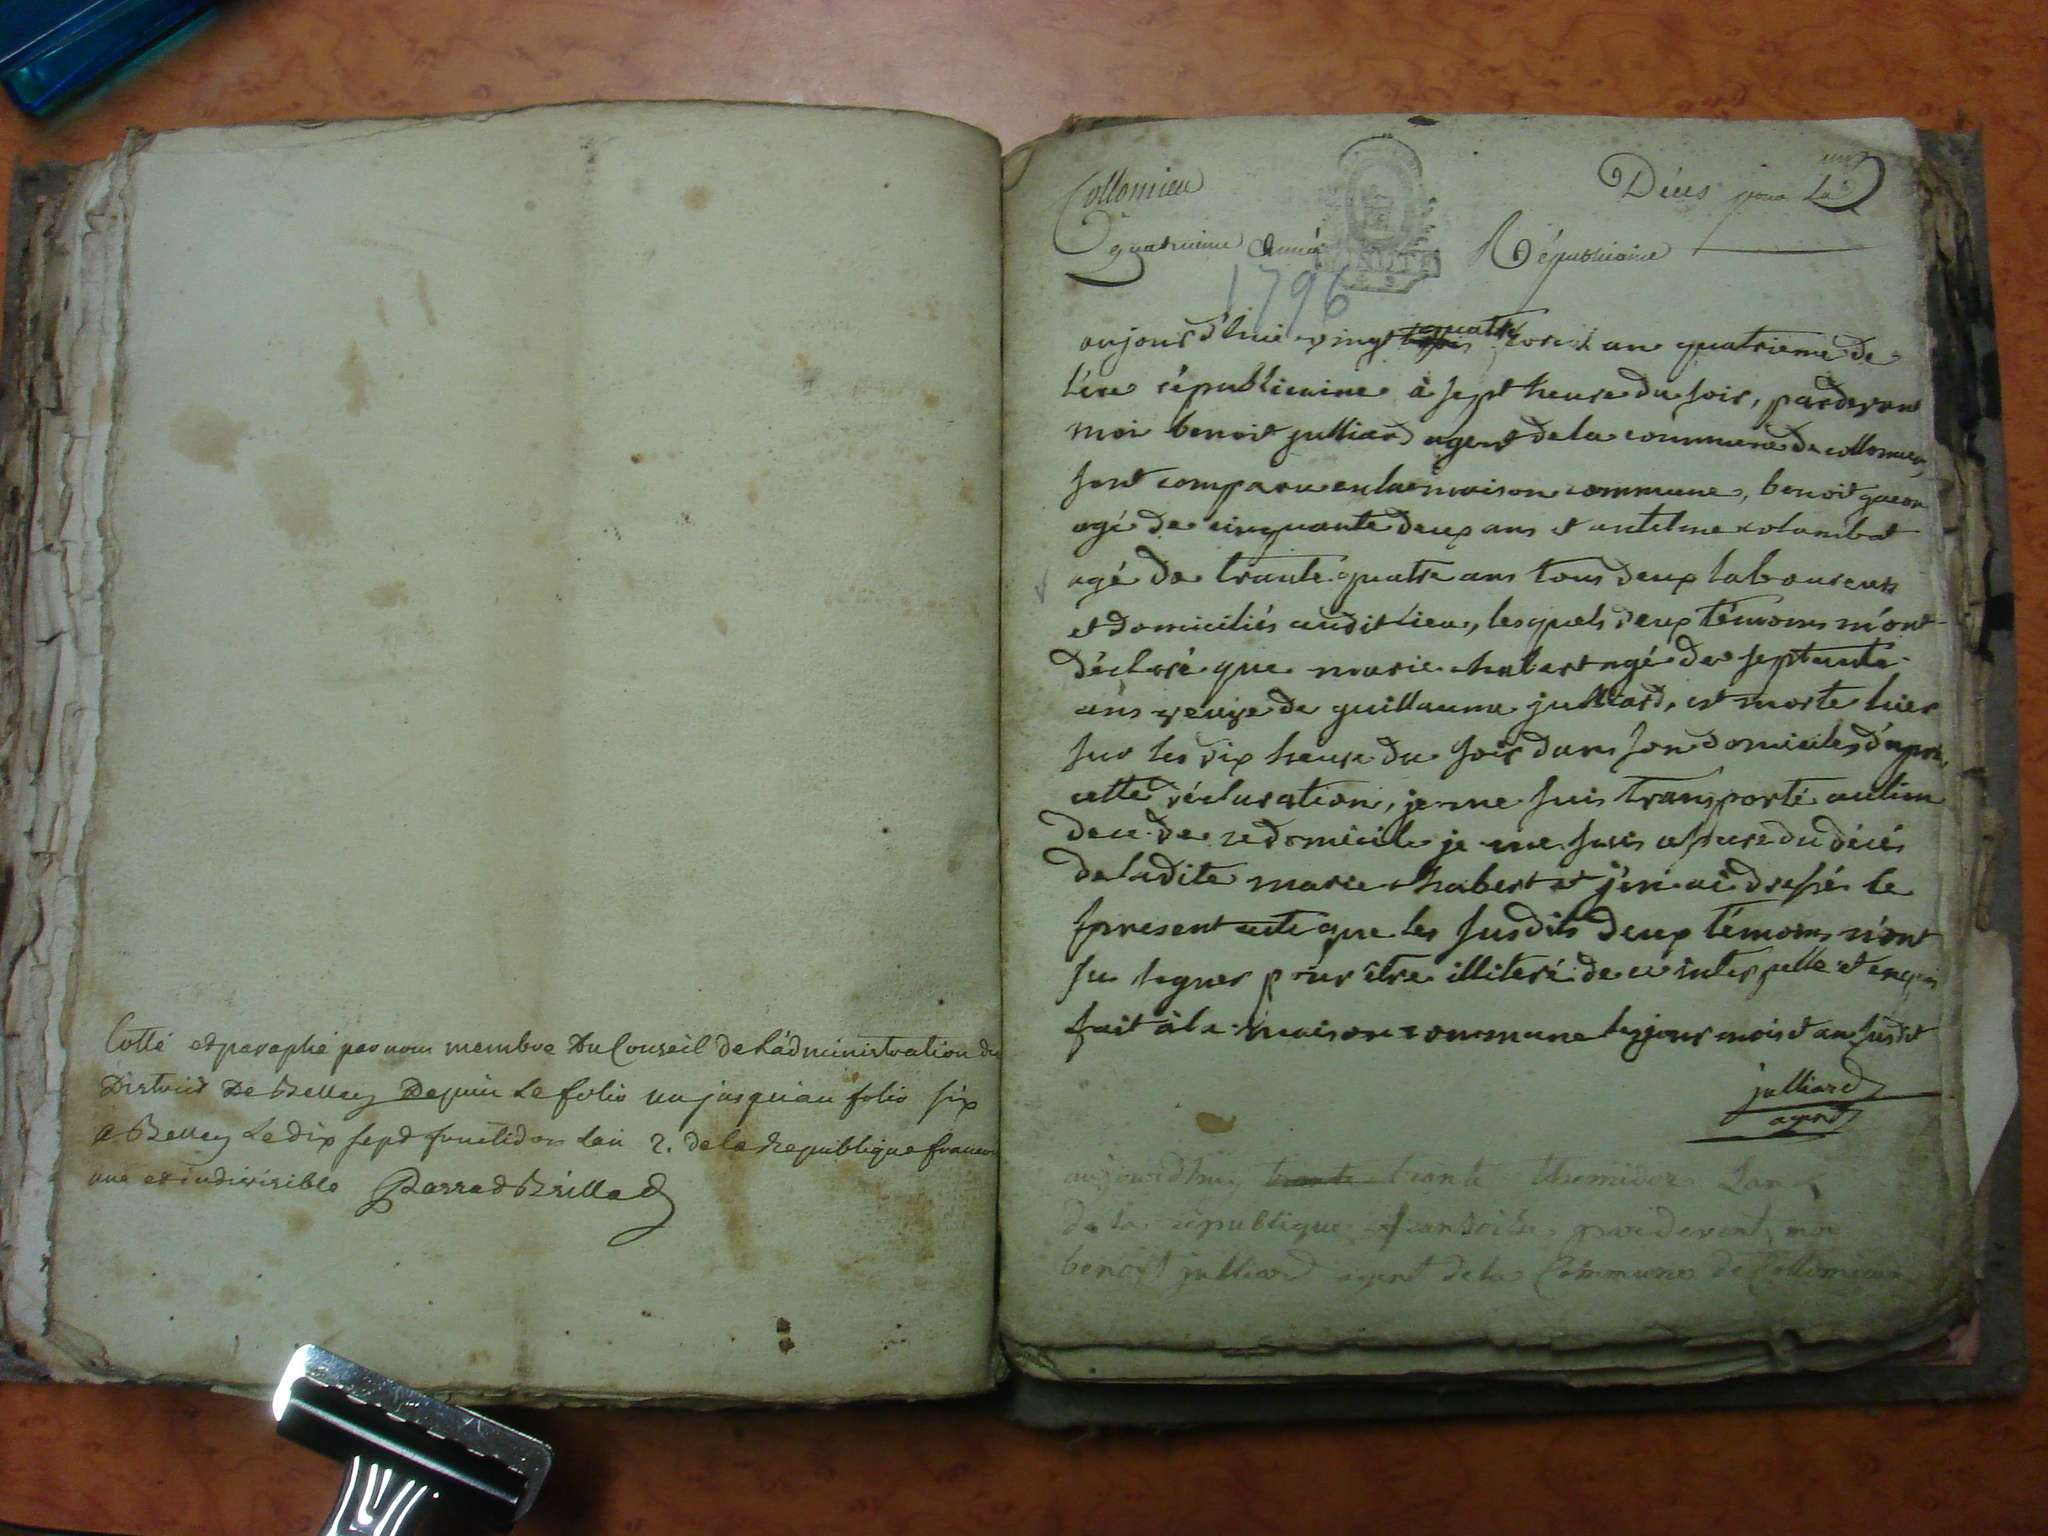 Cotté et paraphé par nous membre Du Conseil de L'administration du
District De Belley Depuis Le folio un jusqu'au folio six
A Belley Le dix sept fructidor L'an 2. de la Republique francoise
une et indivisible Barrad Brillad
Collomieu Décès pour La
quatrieme Année Républicaine
1796
aujourd'hui vingt quatre an quatrieme de
l'ère républicaine à sept heure du soir, pardevant
moi benoit julliard agent de la commune de collomieu,
sont comparu en la maison commune, benoit gacon
agé de cinquante deux ans et antelme colombat
agé de trante quatre ans tous deux laboureurs
et domiciliés audit lieu, lesquels deux témoins m'ont
déclaré que marie chabert agé de septante
ans veuve de guillaume julliard, est morte hier
sur les dix heure du soir dans son domicile, d'après
cette déclaration, je me suis transporté au lieu
de ce domicile je me suis assuré du décès
de ladite marie chabert et j'en ai dressé le
present acte que les susdits deux témoins n'ont
su signer pour être illiteré de ce interpellé et enquis
fait à la maison commune les jour mois et an susdit
julliard
agent
aujourdhuy trante trante thermidor L'an
de la république franсoise pardevant moi
benoit julliard agent de la Commune de Collomieu